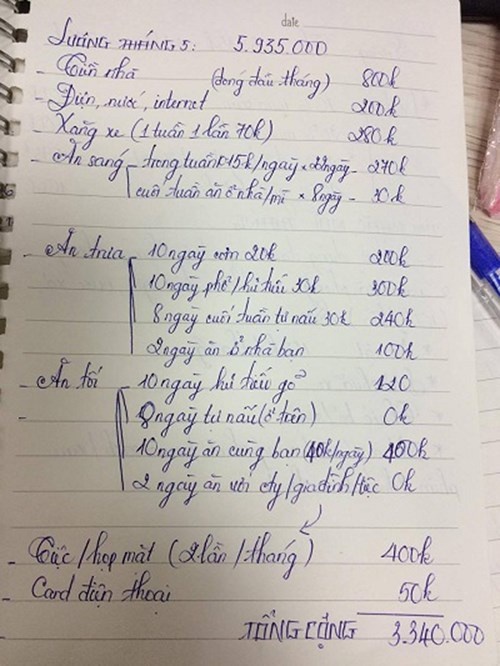 date
LƯƠNG THÁNG 5: 5.935.000
- Tiền nhà (đóng đầu tháng) 800k
- Điện, nước, internet 200k
- Xăng xe (1 tuần 1 lần 70k) 280k
- Ăn sáng - trong tuần 15k/ngày × 22ngày - 270k
cuối tuần ăn ở nhà/mì × 8ngày - 30k
- Ăn trưa - 10 ngày cơm 20k 200k
10 ngày phở/hủ tiếu 30k 300k
8 ngày cuối tuần tự nấu 30k 240k
2 ngày ăn ở nhà bạn 100k
- Ăn tối - 10 ngày hủ tiếu gõ 120
- 8 ngày tự nấu (ở trên) 0k
10 ngày ăn cùng bạn (40k/ngày) 400k
2 ngày ăn với cty/gia đình/tiệc 0k
- Tiệc/họp mặt (2 lần/tháng) 400k
- Card điện thoại 50k
TỔNG CỘNG 3.340.000